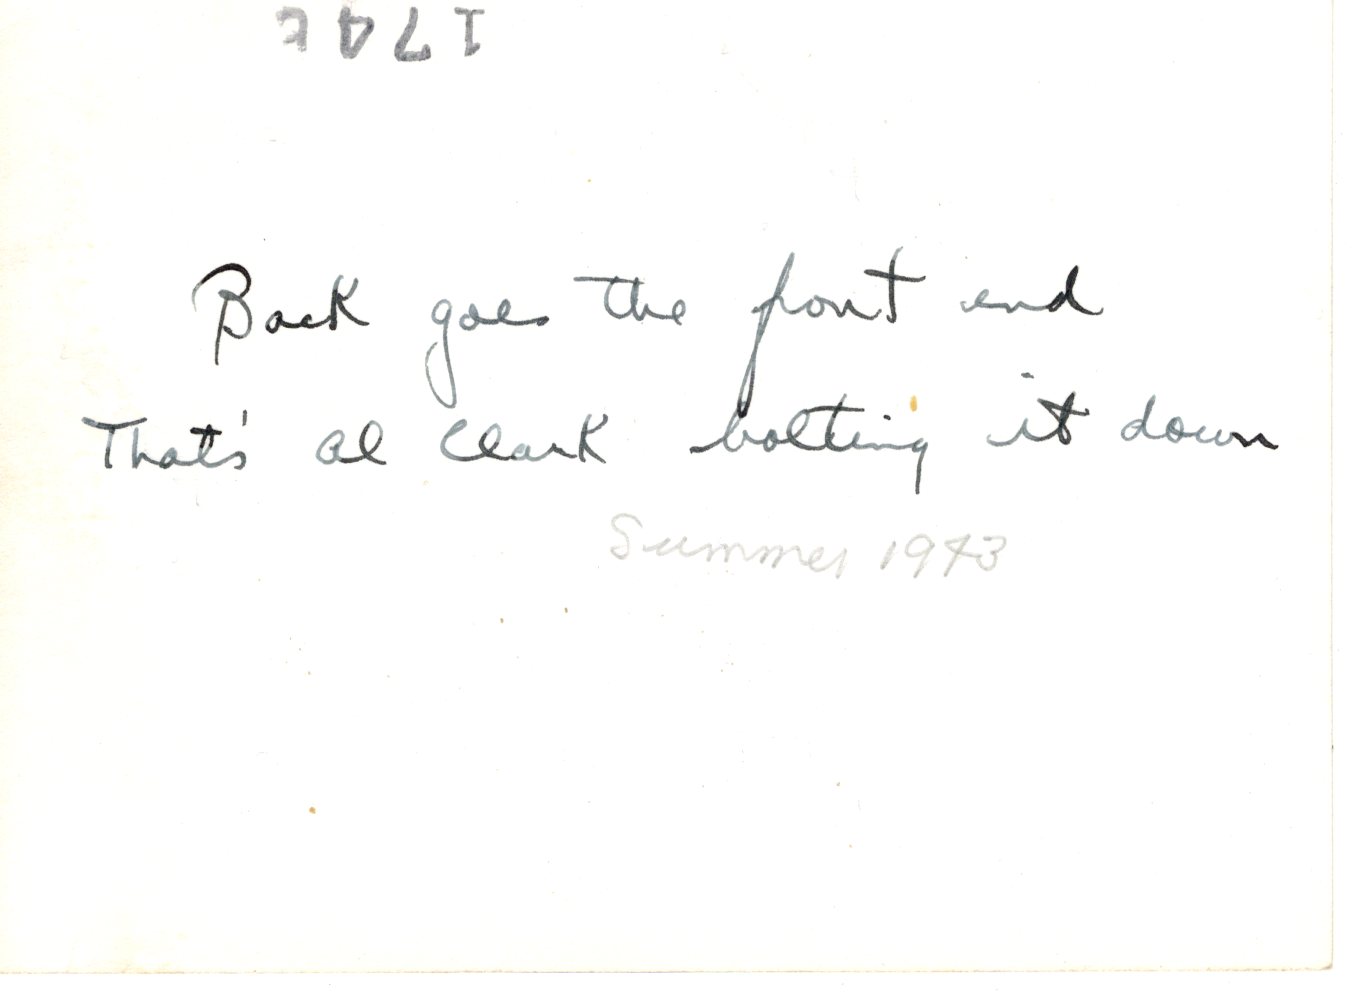 Back goes the front end
That's Al Clark bolting it down
Summer 1943